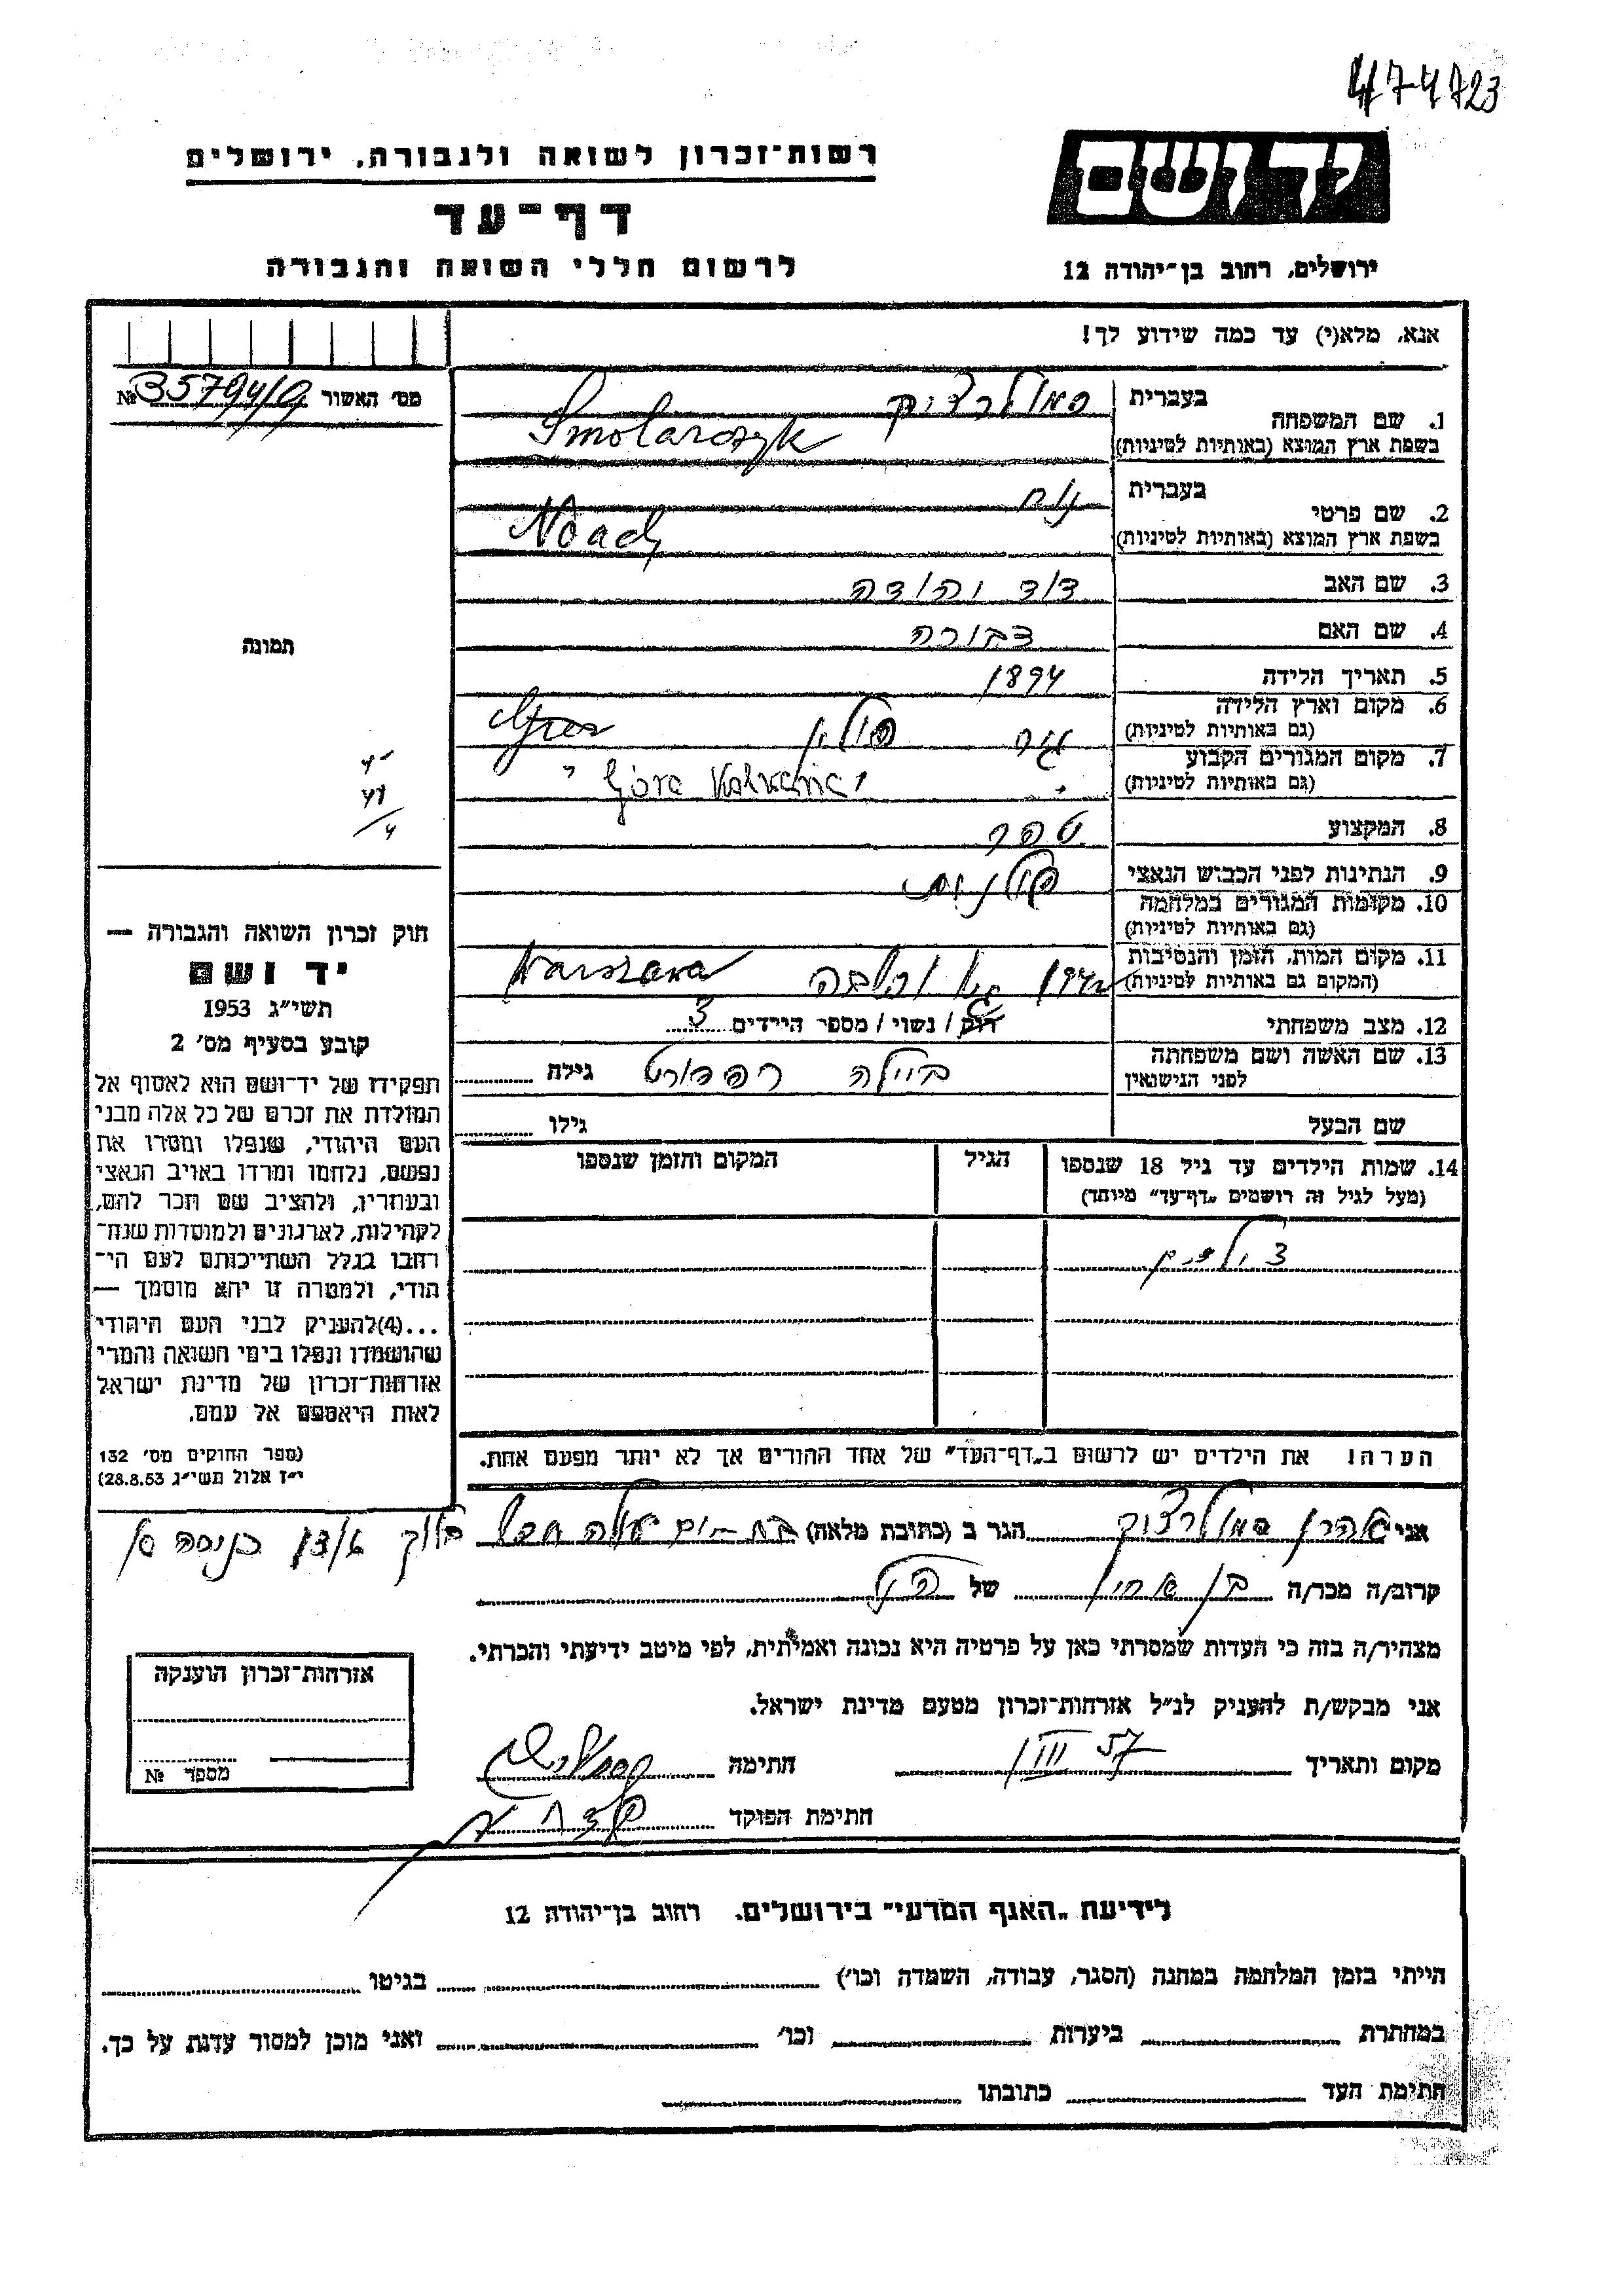 474723
רשות־זכרון לשואה ולגבורה, ירושלים
יד ושם
דף־עד
לרשום חללי השואה והגבורה
ירושלים, רחוב בן־יהודה 12
אנא, מלא(י) עד כמה שידוע לך!
מס׳ האשור № 35794/9
1. שם המשפחה בעברית סמולרציק
בשפת ארץ המוצא (באותיות לטיניות) Smolarczyk
2. שם פרטי בעברית נח
בשפת ארץ המוצא (באותיות לטיניות) Noach
3. שם האב דוד יהודה
4. שם האם דבורה
תמונה
5. תאריך הלידה 1894
6. מקום וארץ הלידה גור פולין
(גם באותיות לטיניות)
7. מקום המגורים הקבוע Góra Kalwaria
(גם באותיות לטיניות)
8. המקצוע ספר
9. הנתינות לפני הכבוש הנאצי פולנית
10. מקומות המגורים במלחמה
(גם באותיות לטיניות)
11. מקום המות, הזמן והנסיבות 1942 Warszawa
(המקום גם באותיות לטיניות)
12. מצב משפחתי רוק / נשוי / מספר הילדים 3
13. שם האשה ושם משפחתה ביילה רפפורט גילה
לפני הנישואין
שם הבעל גילו
14. שמות הילדים עד גיל 18 שנספו הגיל המקום והזמן שנספו
(מעל לגיל זה רושמים „דף־עד״ מיוחד)
3 ילדים
הערה! את הילדים יש לרשום ב„דף־העד״ של אחד ההורים אך לא יותר מפעם אחת.
חוק זכרון השואה והגבורה —
יד ושם
תשי״ג 1953
קובע בסעיף מס׳ 2
תפקידו של יד־ושם הוא לאסוף אל
המולדת את זכרם של כל אלה מבני
העם היהודי, שנפלו ומסרו את
נפשם, נלחמו ומרדו באויב הנאצי
ובעוזריו, ולהציב שם וזכר להם,
לקהילות, לארגונים ולמוסדות שנח־
רבו בגלל השתייכותם לעם הי־
הודי, ולמטרה זו יהא מוסמך —
...(4)להעניק לבני העם היהודי
שהושמדו ונפלו בימי השואה והמרי
אזרחות־זכרון של מדינת ישראל
לאות היאספם אל עמם.
(ספר החוקים מס׳ 132
י״ז אלול תשי״ג 28.8.53)
אני אהרן סמולרציק הגר ב (כתובת מלאה) בת-ים בלוק כניסה
קרוב/ה מכר/ה בן אחיו של הנ״ל
מצהיר/ה בזה כי העדות שמסרתי כאן על פרטיה היא נכונה ואמיתית, לפי מיטב ידיעתי והכרתי.
אני מבקש/ת להעניק לנ״ל אזרחות־זכרון מטעם מדינת ישראל.
מקום ותאריך 1 III 57 חתימה
חתימת הפוקד
אזרחות־זכרון הוענקה
מספר №
לידיעת „האגף המדעי״ בירושלים. רחוב בן־יהודה 12
הייתי בזמן המלחמה במחנה (הסגר, עבודה, השמדה וכו׳) בגיטו
במחתרת ביערות וכו׳ ואני מוכן למסור עדות על כך.
חתימת העד כתובתו